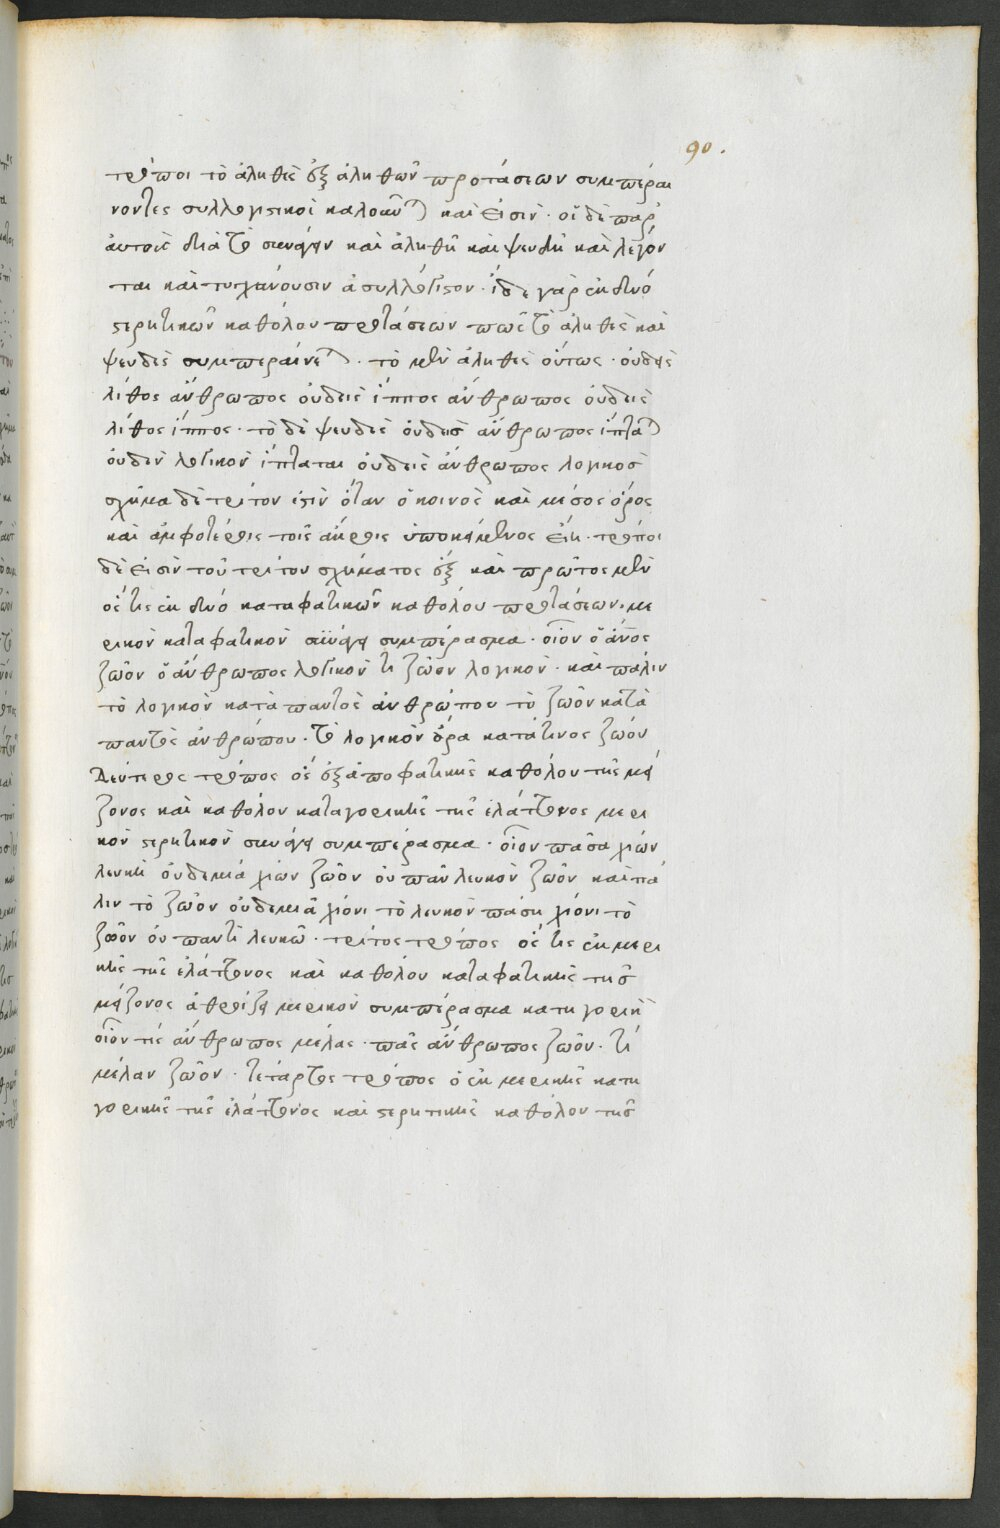 90.
τρόποι τὸ ἀληθὲς ἐξ ἀληθῶν προτάσεων συμπεραί
νοντες συλλογιστικοὶ καλοῦνται καὶ εἰσίν· οἱ δὲ παρ'
αὐτοὺς διὰ τὸ συνάγειν καὶ ἀληθῆ καὶ ψευδῆ καὶ λέγον
ται καὶ τυγχάνουσιν ἀσυλλόγιστοι· ἴδε γὰρ ἐκ δυό
στερητικῶν καθόλου προτάσεων πῶς τὸ ἀληθὲς καὶ
ψευδὲς συμπεραίνεται· τὸ μὲν ἀληθὲς οὕτως· οὐδεὶς
λίθος ἄνθρωπος οὐδεὶς ἵππος ἄνθρωπος οὐδεὶς
λίθος ἵππος· τὸ δὲ ψευδὲς οὐδεὶς ἄνθρωπος ἵπταται
οὐδὲν λογικὸν ἵπταται οὐδεὶς ἄνθρωπος λογικὸς
σχῆμα δὲ τρίτον ἐστὶν ὅταν ὁ κοινὸς καὶ μέσος ὅρος
καὶ ἀμφοτέροις τοῖς ἄκροις ὑποκείμενος εἴη· τρόποι
δὲ εἰσὶν τοῦ τρίτου σχήματος ἓξ καὶ πρῶτος μὲν
ὅς τις ἐκ δυό καταφατικῶν καθόλου προτάσεων με
ρικὸν καταφατικὸν συνάγει συμπέρασμα· οἷον ὁ ἄνος
ζῶον ὁ ἄνθρωπος λογικὸν τὶ ζῶον λογικὸν· καὶ πάλιν
τὸ λογικὸν κατὰ παντὸς ἀνθρώπου τὸ ζῶον κατὰ
παντὸς ἀνθρώπου· τὸ λογικὸν ἄρα κατά τινος ζώου
Δεύτερος τρόπος ὅς ἐξ ἀποφατικῆς καθόλου τῆς μεί
ζονος καὶ καθόλου κατηγορικῆς τῆς ἐλάττονος μερι
κὸν στερητικὸν συνάγει συμπέρασμα· οἷον πᾶσα χιὼν
λευκὴ οὐδεμία χιὼν ζῶον οὐ πᾶν λευκὸν ζῶον καὶ πά
λιν τὸ ζῶον οὐδεμιᾷ χιόνι τὸ λευκὸν πάσῃ χιόνι τὸ
ζῶον οὐ παντὶ λευκῶ· τρίτος τρόπος ὅς τις ἐκ μερι
κῆς τῆς ἐλάττονος καὶ καθόλου καταφατικῆς τῆς
μείζονος ἀθροίζει μερικὸν συμπέρασμα κατηγορικὸν
οἷον τὶς ἄνθρωπος μέλας· πᾶς ἄνθρωπος ζῶον· τὶ
μέλαν ζῶον· τέταρτος τρόπος ὁ ἐκ μερικῆς κατη
γορικῆς τῆς ἐλάττονος καὶ στερητικῆς καθόλου τῆς